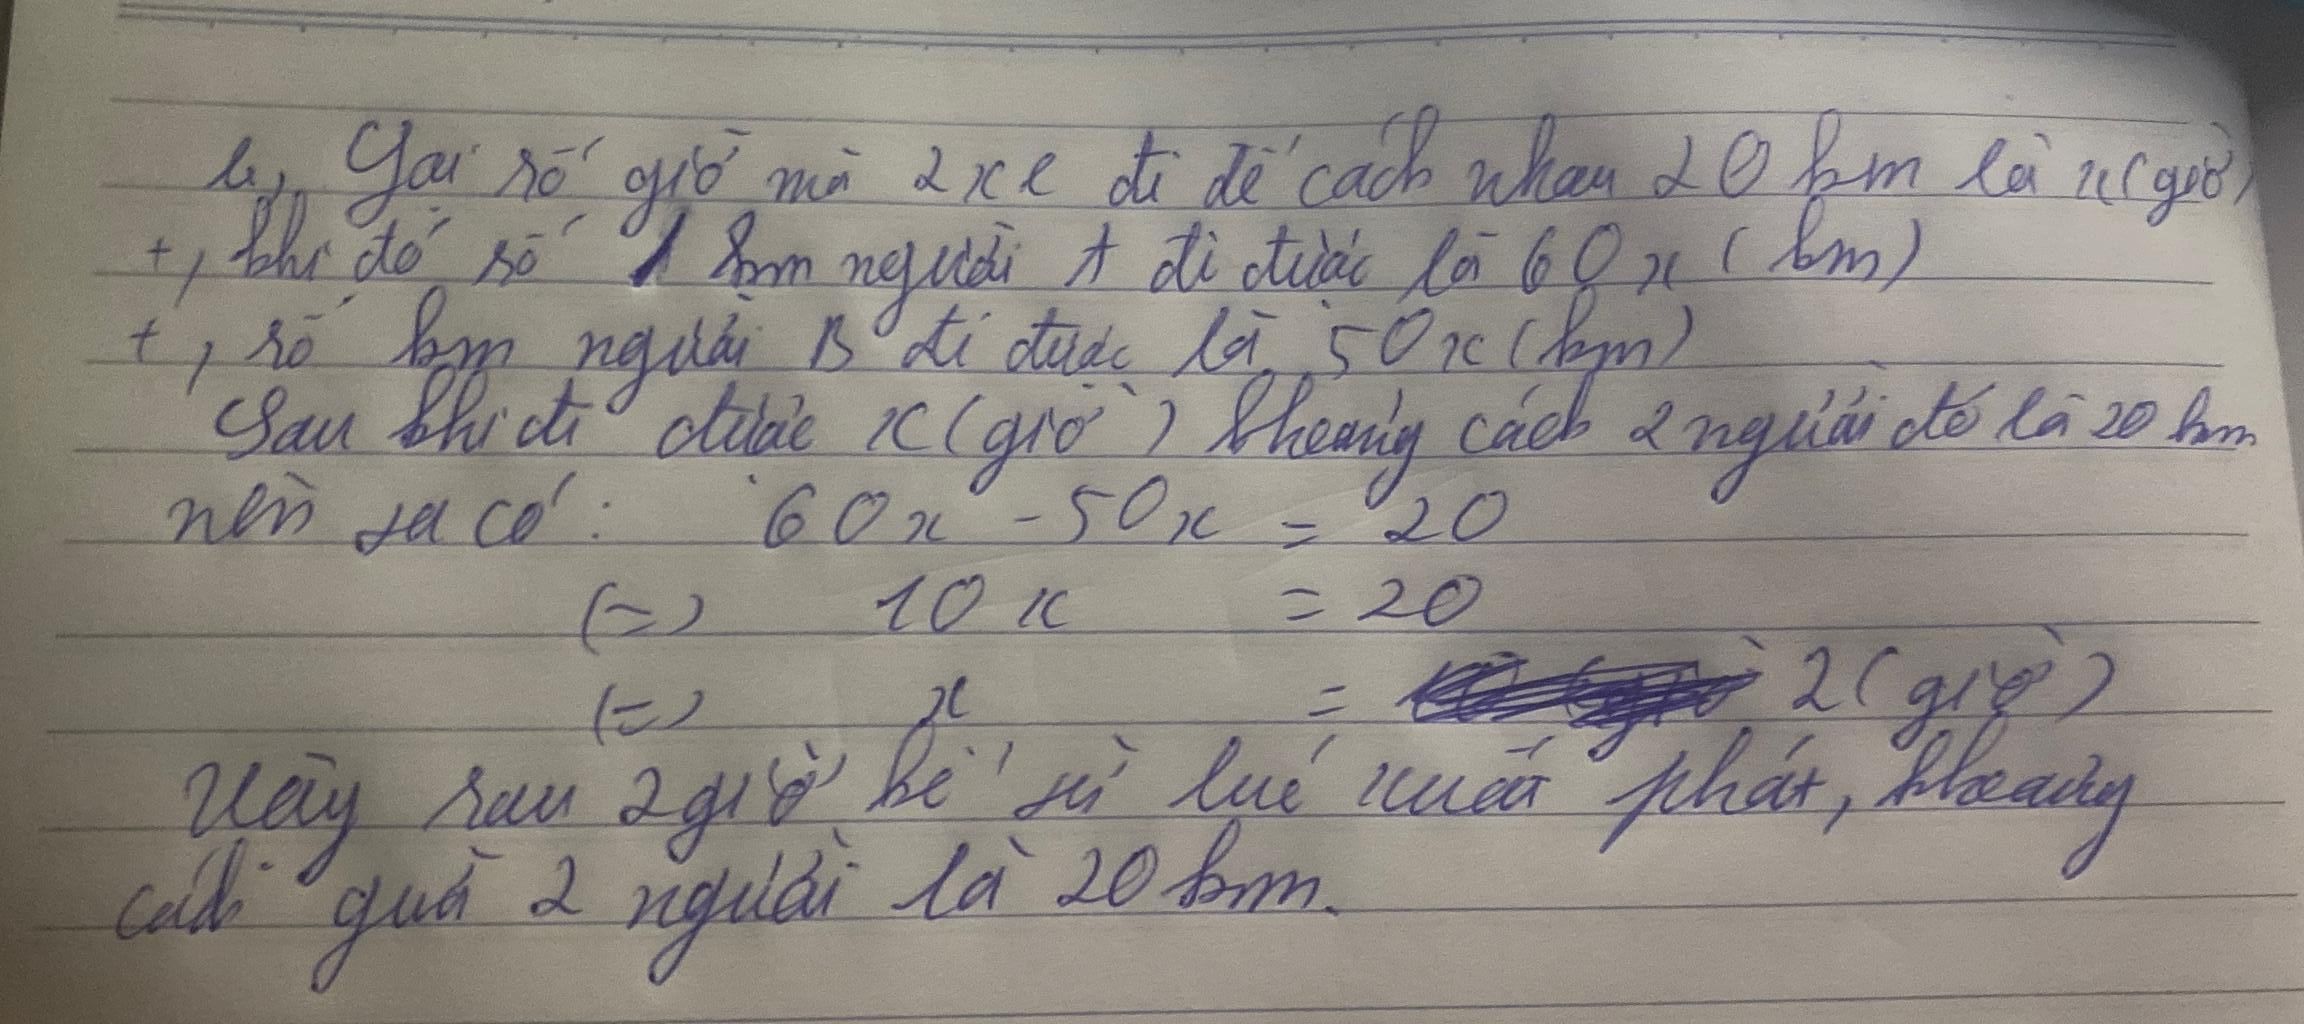 b, Gọi số giờ mà 2 xe đi để cách nhau 20 km là x (giờ)
+, khi đó số km người A đi được là 60x (km)
+, số km người B đi được là 50x (km)
Sau khi đi được x (giờ) khoảng cách 2 người đó là 20 km
nên ta có: 60x - 50x = 20
(=) 10x = 20
(=) x = 2 (giờ)
Vậy sau 2 giờ kể từ lúc xuất phát, khoảng
cách giữa 2 người là 20 km.